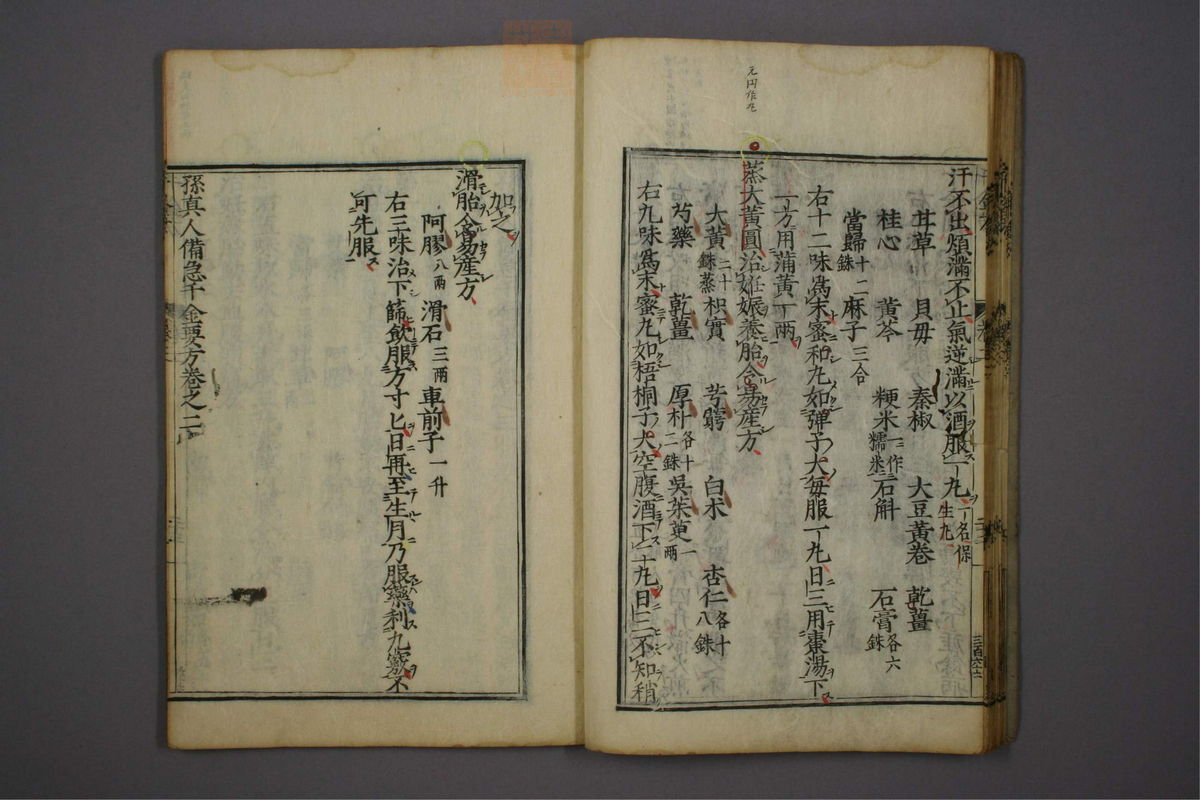 元円作丸
汗不出煩滿不止氣逆滿以酒服一丸一名保生丸
甘草 貝母 秦椒 大豆黃卷 乾薑
桂心 黃芩 粳米一作糯米 石斛 石膏各六銖
當歸十二銖 麻子三合
右十二味爲末蜜和丸如彈子大每服一丸日三用棗湯下
一方用蒲黃一兩
蒸大黃圓治妊娠養胎令易產方
大黃二十銖蒸 枳實 芎藭 白朮 杏仁各十八銖
芍藥 乾薑 厚朴各十二銖 吳茱萸一兩
右九味爲末蜜丸如梧桐子大空腹酒下二丸日三不知稍
加之
滑胎令易產方
阿膠八兩 滑石三兩 車前子一升
右三味治下篩飲服方寸匕日再至生月乃服藥利九竅不
可先服
孫真人備急千金要方卷之二